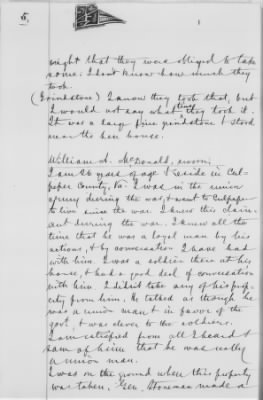 5.
night that they were obliged to take
some. I don't know how much they
took.
(Grindstone) I know they took that, but
I would not say what time they took it.
It was a large fine grindstone & stood
near the hen house.
William A. McDonald, sworn.
I am 26 years of age & reside in Cul-
peper County, Va. I was in the union
army during the war, & went to Culpeper
to live since the war. I knew this claim-
ant during the war. I knew all the
time that he was a loyal man by his
actions, & by conversation I have had
with him. I was a soldier there at his
house, & had a good deal of conversation
with him. I didn't take any of his prop-
erty from him. He talked as though he
was a union man & in favor of the
govt, & was clever to the soldiers.
I am satisfied from all I heard &
saw of him that he was really
a union man.
I was on the ground when this property
was taken. Gen. Stoneman made a